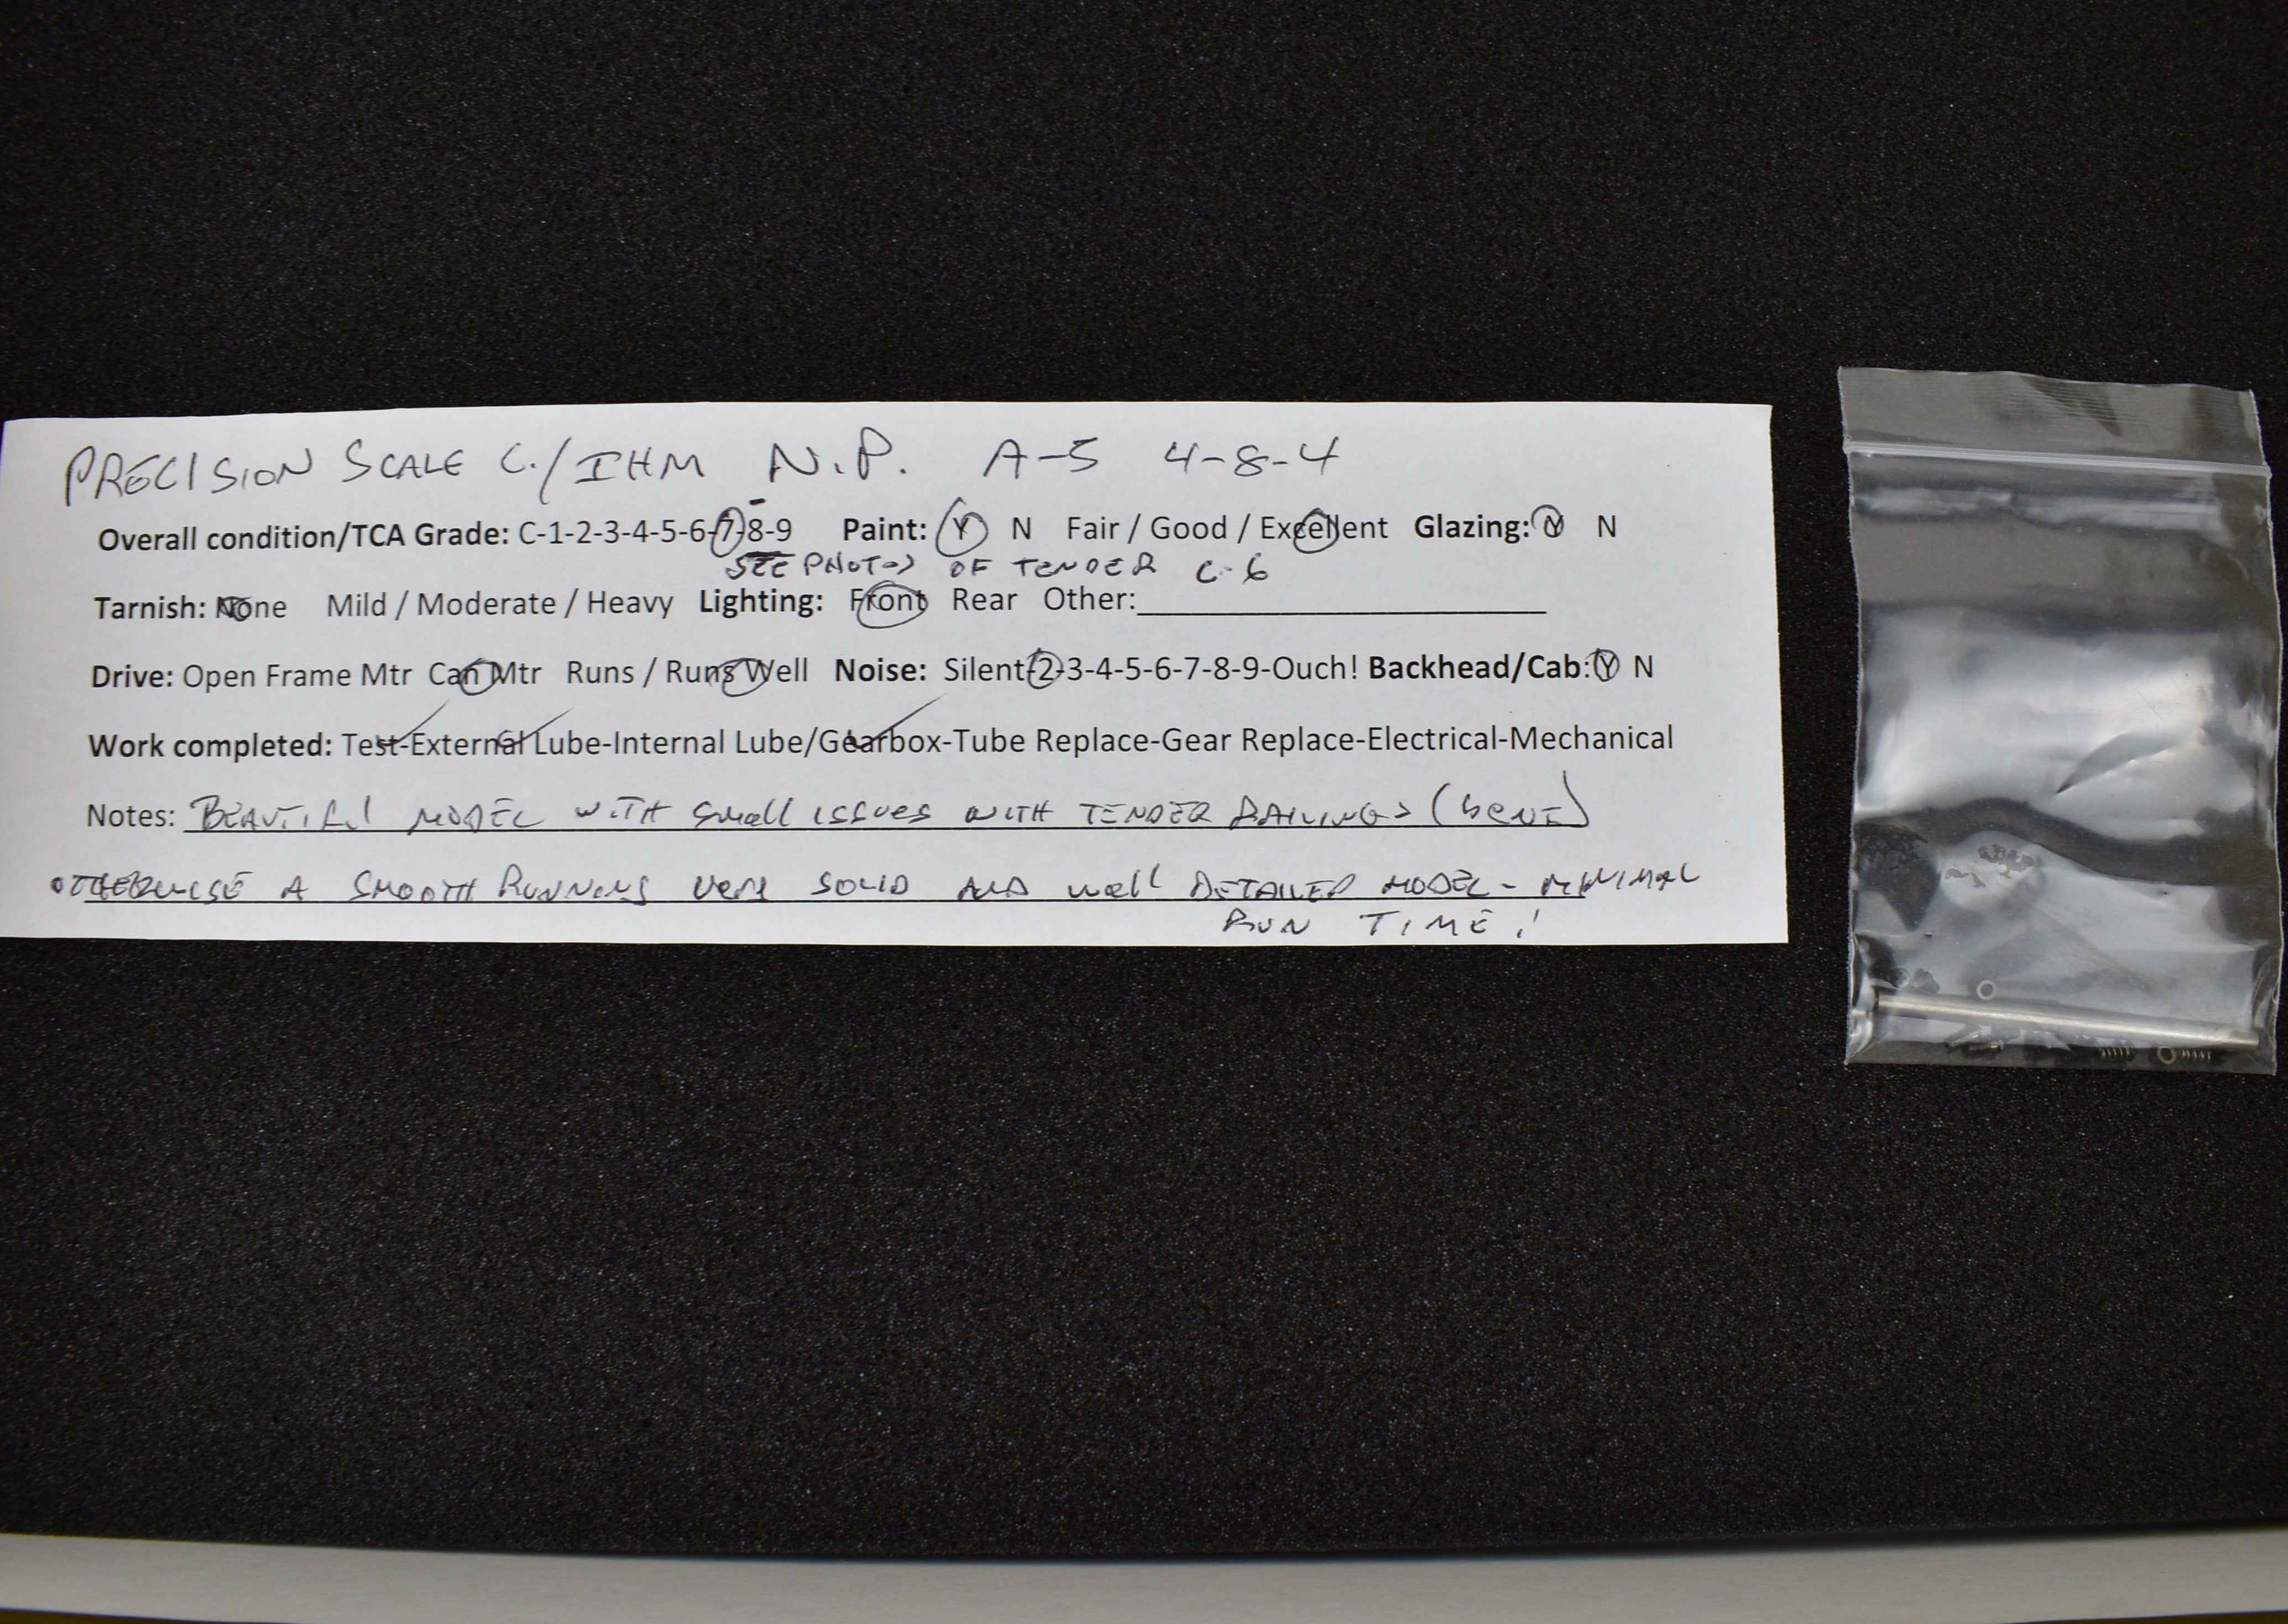 PRECISION SCALE C./IHM N.P. A-5 4-8-4
Overall condition/TCA Grade: C-1-2-3-4-5-6-7-8-9 Paint: Y N Fair / Good / Excellent Glazing: Y N
SEE PHOTOS OF TENDER C-6
Tarnish: None Mild / Moderate / Heavy Lighting: Front Rear Other:
Drive: Open Frame Mtr Can Mtr Runs / Runs Well Noise: Silent-2-3-4-5-6-7-8-9-Ouch! Backhead/Cab: Y N
Work completed: Test-External Lube-Internal Lube/Gearbox-Tube Replace-Gear Replace-Electrical-Mechanical
Notes: BEAUTIFUL MODEL WITH small ISSUES WITH TENDER RAILINGS (BENT)
OTHERWISE A SMOOTH RUNNING VERY SOLID AND well DETAILED MODEL - MINIMAL
RUN TIME!